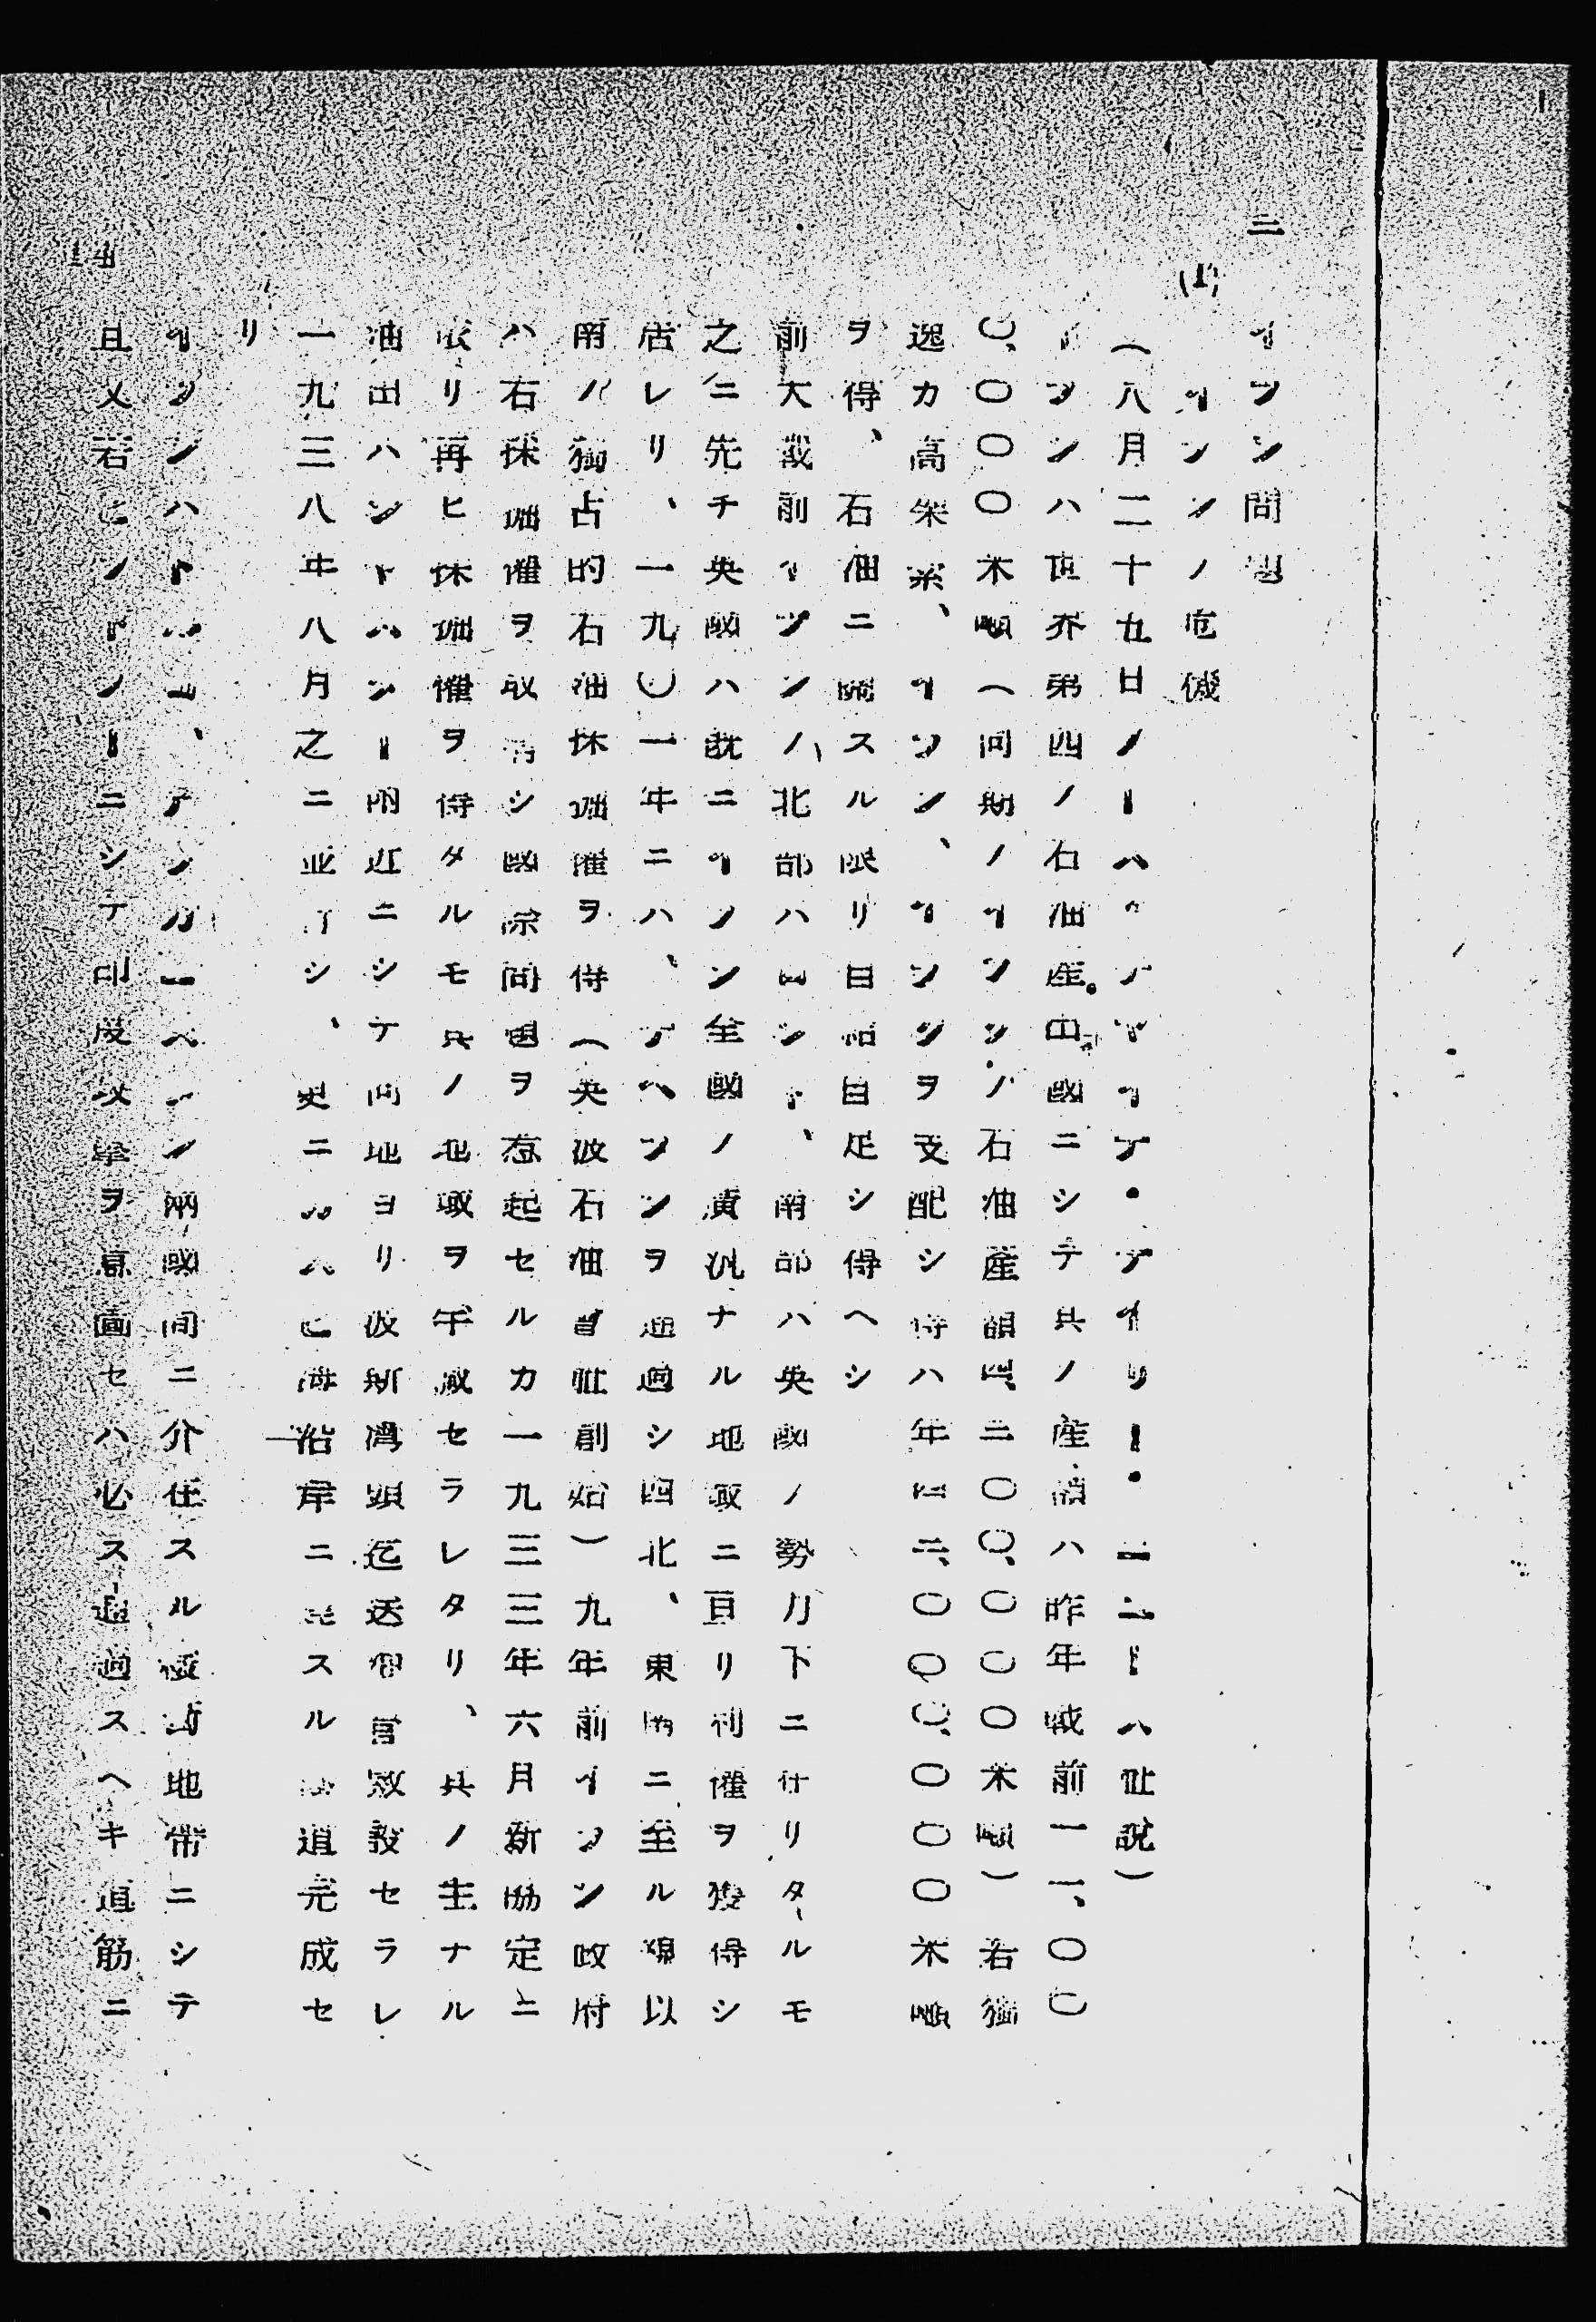 二
イラン問題
(1)
イランノ危機
(八月二十九日ノーハヴアマイテ・デイリー・ニユーハ社説)
イランハ世界第四ノ石油産出國ニシテ其ノ産額ハ昨年戦前一一、〇〇
〇、〇〇〇米噸(同期ノイラクノ石油産額四、三〇〇、〇〇〇米噸)若獨
逸カ高架索、イラン、イラクヲ支配シ得ハ年四二、〇〇〇、〇〇〇米噸
ヲ得、石油ニ關スル限リ自給自足シ得ヘシ
前大戰前イランノ北部ハロシヤ、南部ハ英國ノ勢力下ニ在リタルモ
之ニ先チ英國ハ既ニイラン全國ノ廣汎ナル地域ニ亘リ利權ヲ獲得シ
居レリ、一九〇一年ニハ、テヘランヲ通過シ西北、東南ニ至ル線以
南ノ獨占的石油採掘權ヲ得(英波石油會社創始)九年前イラン政府
ハ右採掘權ヲ取消シ國際問題ヲ惹起セルカ一九三三年六月新協定ニ
依リ再ヒ採掘權ヲ得タルモ其ノ地域ヲ半減セラレタリ、其ノ主ナル
油田ハシトハシー附近ニシテ同地ヨリ波斯灣頭迄送油管敷設セラレ
一九三八年八月之ニ並行シ、更ニ海沿岸ニ達スル鐵道完成セ
リ
イランハトルコ、アフガニスタン兩國間ニ介在スル緩衝地帶ニシテ
且又若ヒノトノーニシテ印度攻擊ヲ意圖セハ必ス通過スヘキ道筋ニ
14